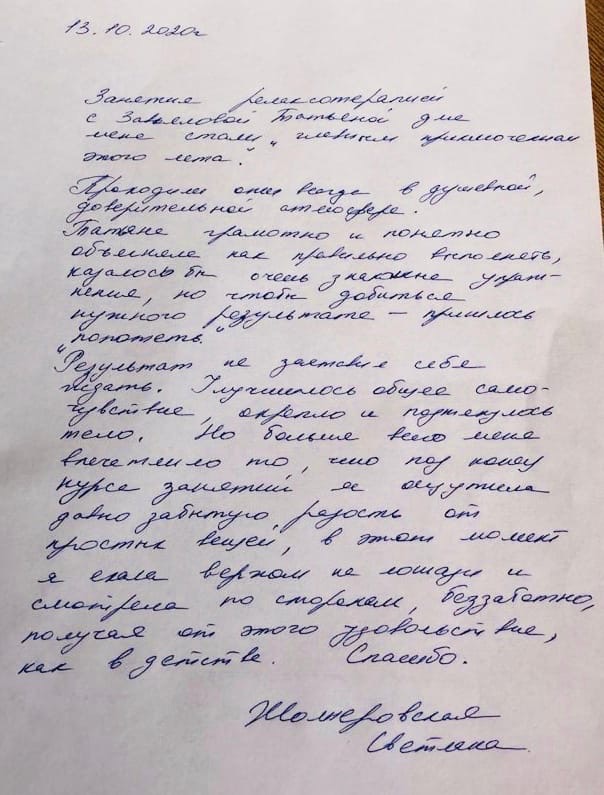 13.10.2020г
Занятия релаксотерапией
с Завьяловой Татьяной для
меня стали „главным приключением
этого лета".
Проходили они всегда в душевной,
доверительной атмосфере.
Татьяна грамотно и понятно
объясняла как правильно выполнять,
казалось бы очень знакомые упраж-
нения, но чтобы добиться
нужного результата – пришлось
„попотеть."
Результат не заставил себя
ждать. Улучшилось общее само-
чувствие, окрепло и подтянулось
тело. Но больше всего меня
впечатлило то, что под конец
курса занятий я ощутила
давно забытую радость от
простых вещей, в этот момент
я ехала верхом на лошади и
смотрела по сторонам, беззаботно,
получая от этого удовольствие,
как в детстве. Спасибо.
Светлана